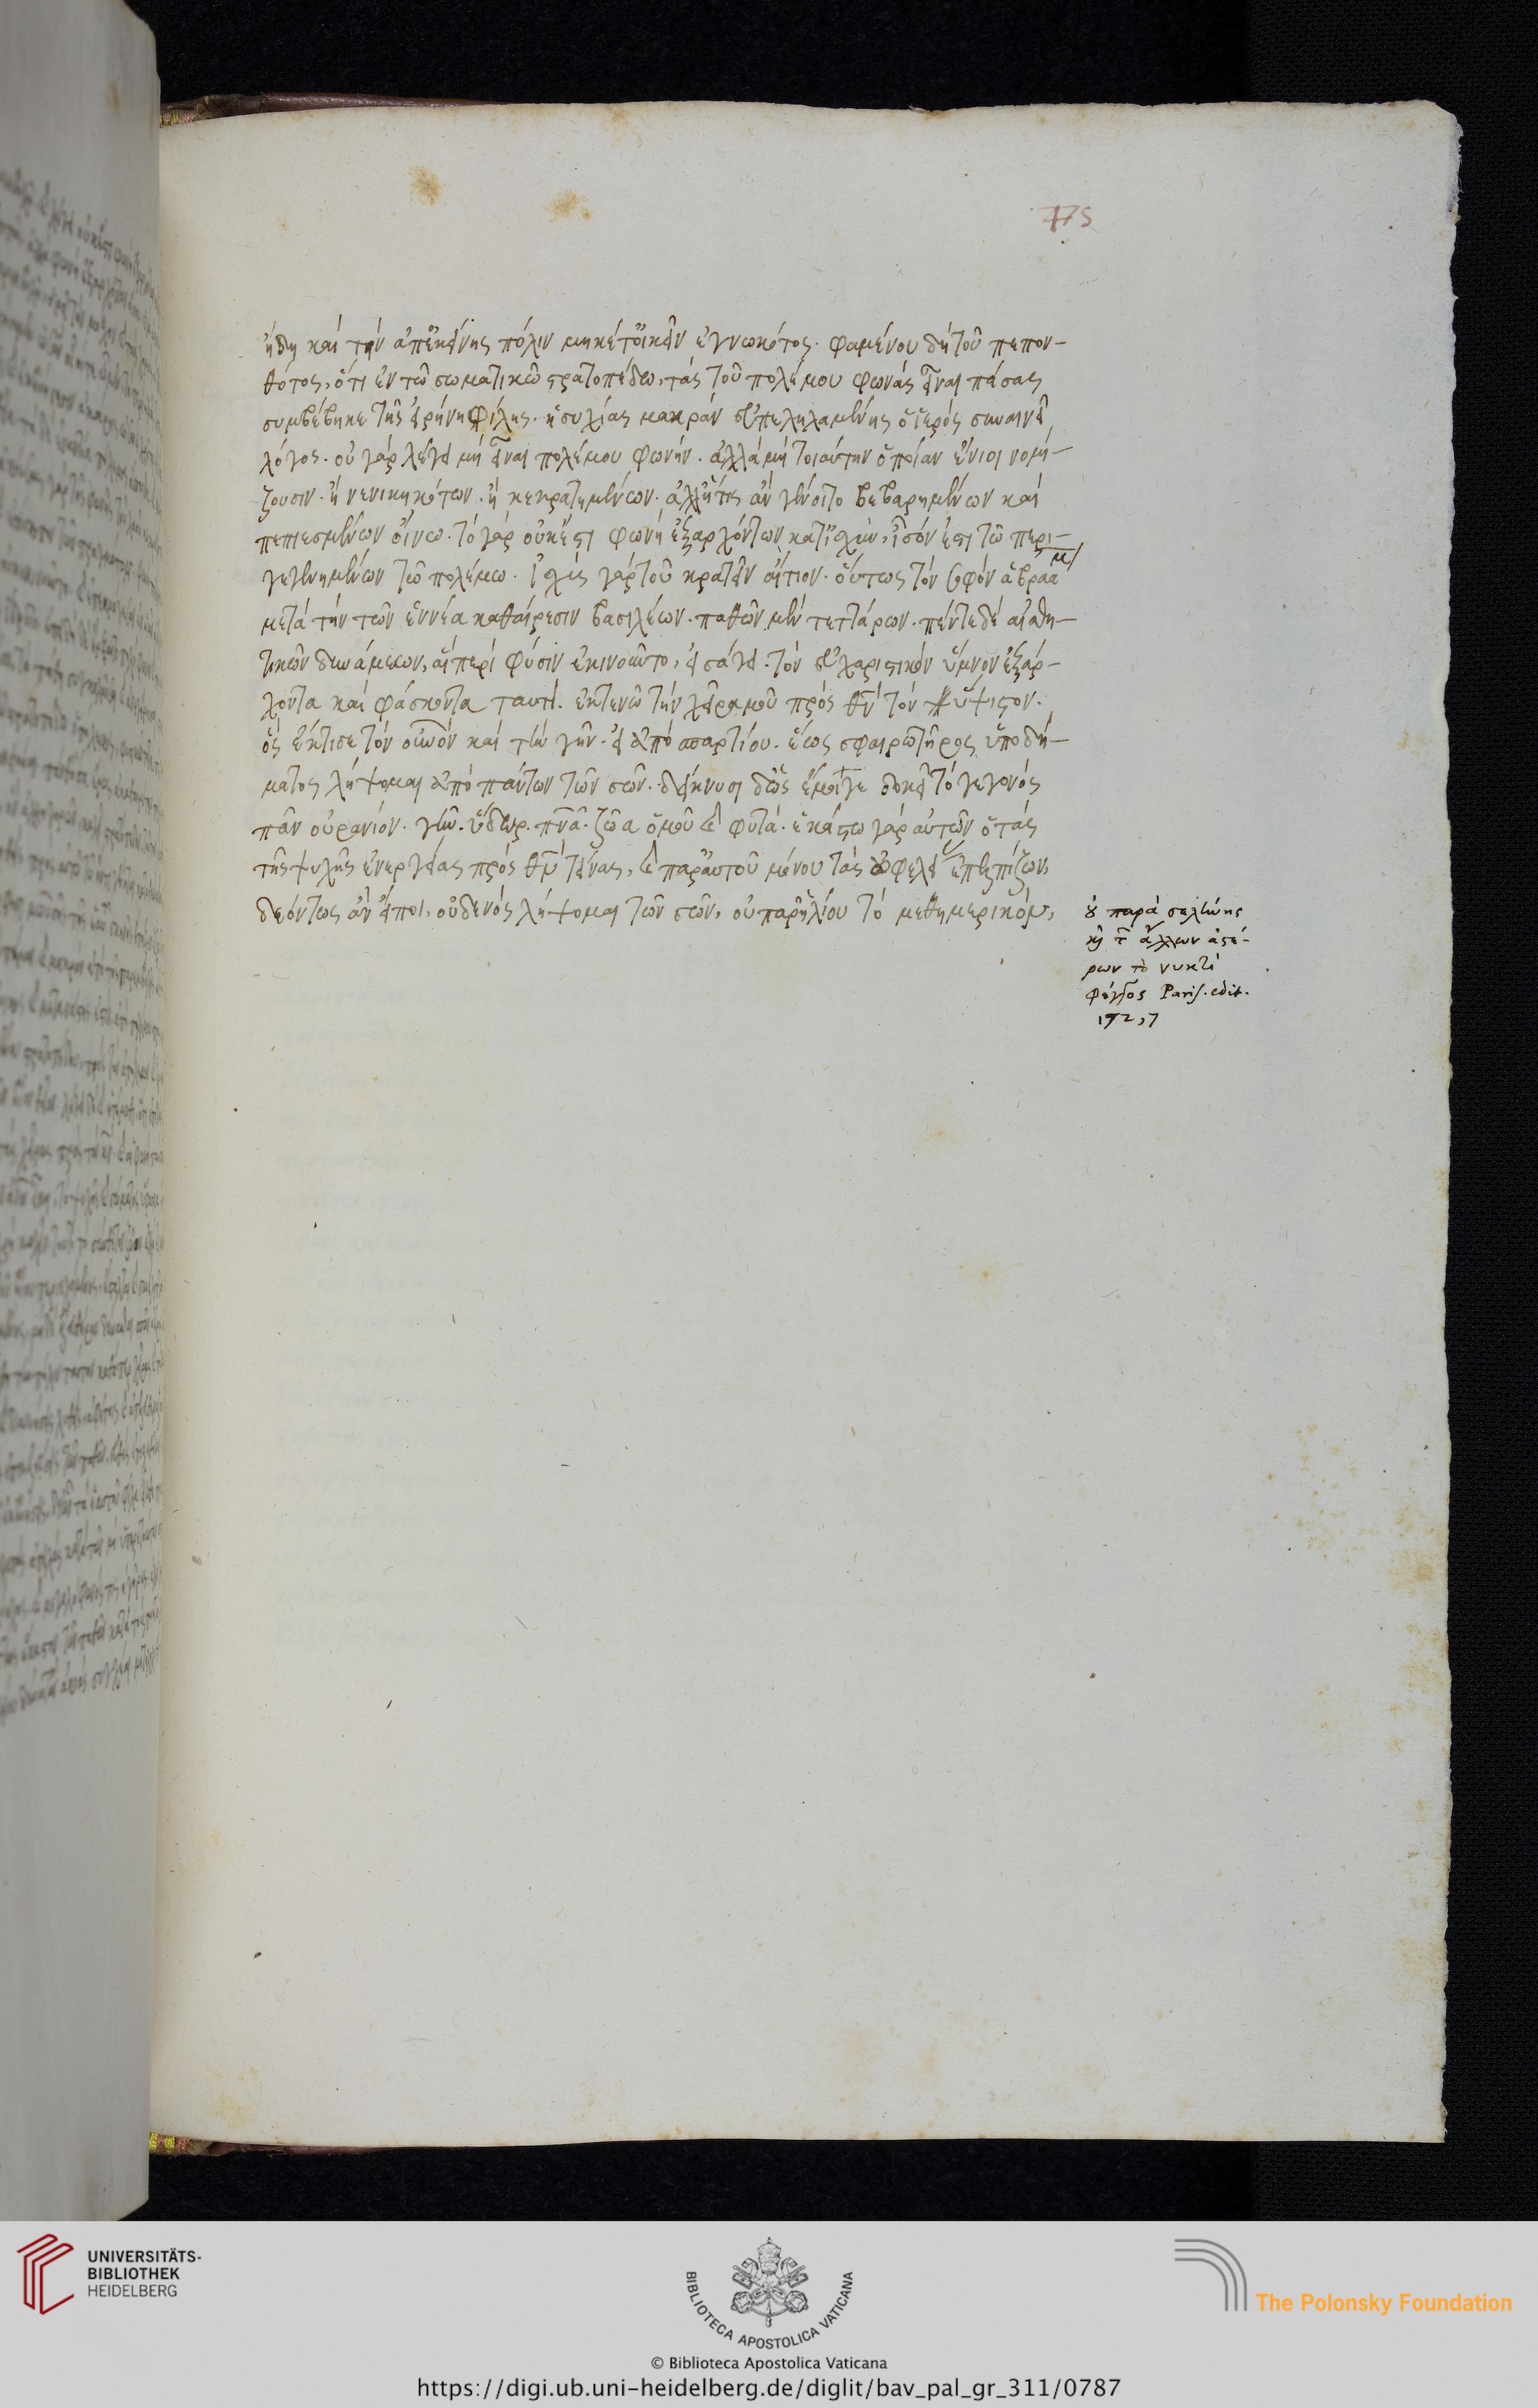 475
ἤδη καὶ τὴν ἀπ' ἐκείνης πόλιν μηκέτ' οἰκεῖν ἐγνωκότος. φαμένου δὴ τοῦ πεπον-
θότος, ὅτι ἐν τῶ σωματικῶ στρατοπέδω, τὰς τοῦ πολέμου φωνὰς εἶναι πάσας
συμβέβηκε τῆς εἰρήνη φίλης. ἡσυχίας μακρὰν ἀπεληλαμένης ὁ ἱερὸς συναινεῖ
λόγος. οὐ γὰρ λέγει μὴ εἶναι πολέμου φωνήν. ἀλλὰ μὴ τοιαύτην ὁποίαν ἔνιοι νομί-
ζουσιν. ἢ νενικηκότων. ἢ κεκρατημένων. ἀλλ' ἥτις ἂν γένοιτο βεβαρημένων καὶ
πεπιεσμένων οἴνω. τὸ γὰρ οὐκ ἔστι φωνὴ ἐξαρχόντων κατ' ἰσχὺν, ἴσόν ἐστι τῶ περι-
γεγενημένων τῶ πολέμω. ἰσχὺς γὰρ τοῦ κρατεῖν αἴτιον. οὕτως τὸν σοφὸν ἀβραὰμ
μετὰ τὴν τῶν ἐννέα καθαίρεσιν βασιλέων. παθῶν μὲν τεττάρων. πέντε δὲ αἰσθη-
τικῶν δυνάμεων, αἳ περὶ φύσιν ἐκινοῦντο, εἰσάγει. τὸν εὐχαριστικὸν ὕμνον ἐξάρ-
χοντα καὶ φάσκοντα ταυτί. ἐκτενῶ τὴν χεῖρα μοῦ πρὸς θν τὸν ὕψιστον.
ὃς ἔκτισε τὸν οὐνὸν καὶ τὴν γῆν. εἰ ἀπὸ σπαρτίου. ἕως σφαιρωτῆρος ὑποδή-
ματος λήψομαι ἀπὸ πάντων τῶν σῶν. δείκνυσι δ' ὡς ἔμοιγε δοκεῖ τὸ γεγονὸς
πᾶν οὐρανόν. γῆν. ὕδωρ. πνα. ζῶα ὁμοῦ καὶ φυτά. ἑκάστω γὰρ αὐτῶν ὁ τὰς
τῆς ψυχῆς ἐνεργείας πρὸς θν τείνας, καὶ παρ' αὐτοῦ μόνου τὰς ὠφελείας ἐπελπίζων,
δεόντως ἂν εἴποι, οὐδενὸς λήψομαι τῶν σῶν, οὐ παρ' ἡλίου τὸ μεθημερινὸν,
οὐ παρὰ σελήνης
καὶ τ ἄλλων ἀστέ-
ρων τὸ νυκτὶ
φέγγος Paris. edit.
172,7
UNIVERSITÄTS-
BIBLIOTHEK
HEIDELBERG
BIBLIOTECA APOSTOLICA VATICANA
The Polonsky Foundation
© Biblioteca Apostolica Vaticana
https://digi.ub.uni-heidelberg.de/diglit/bav_pal_gr_311/0787